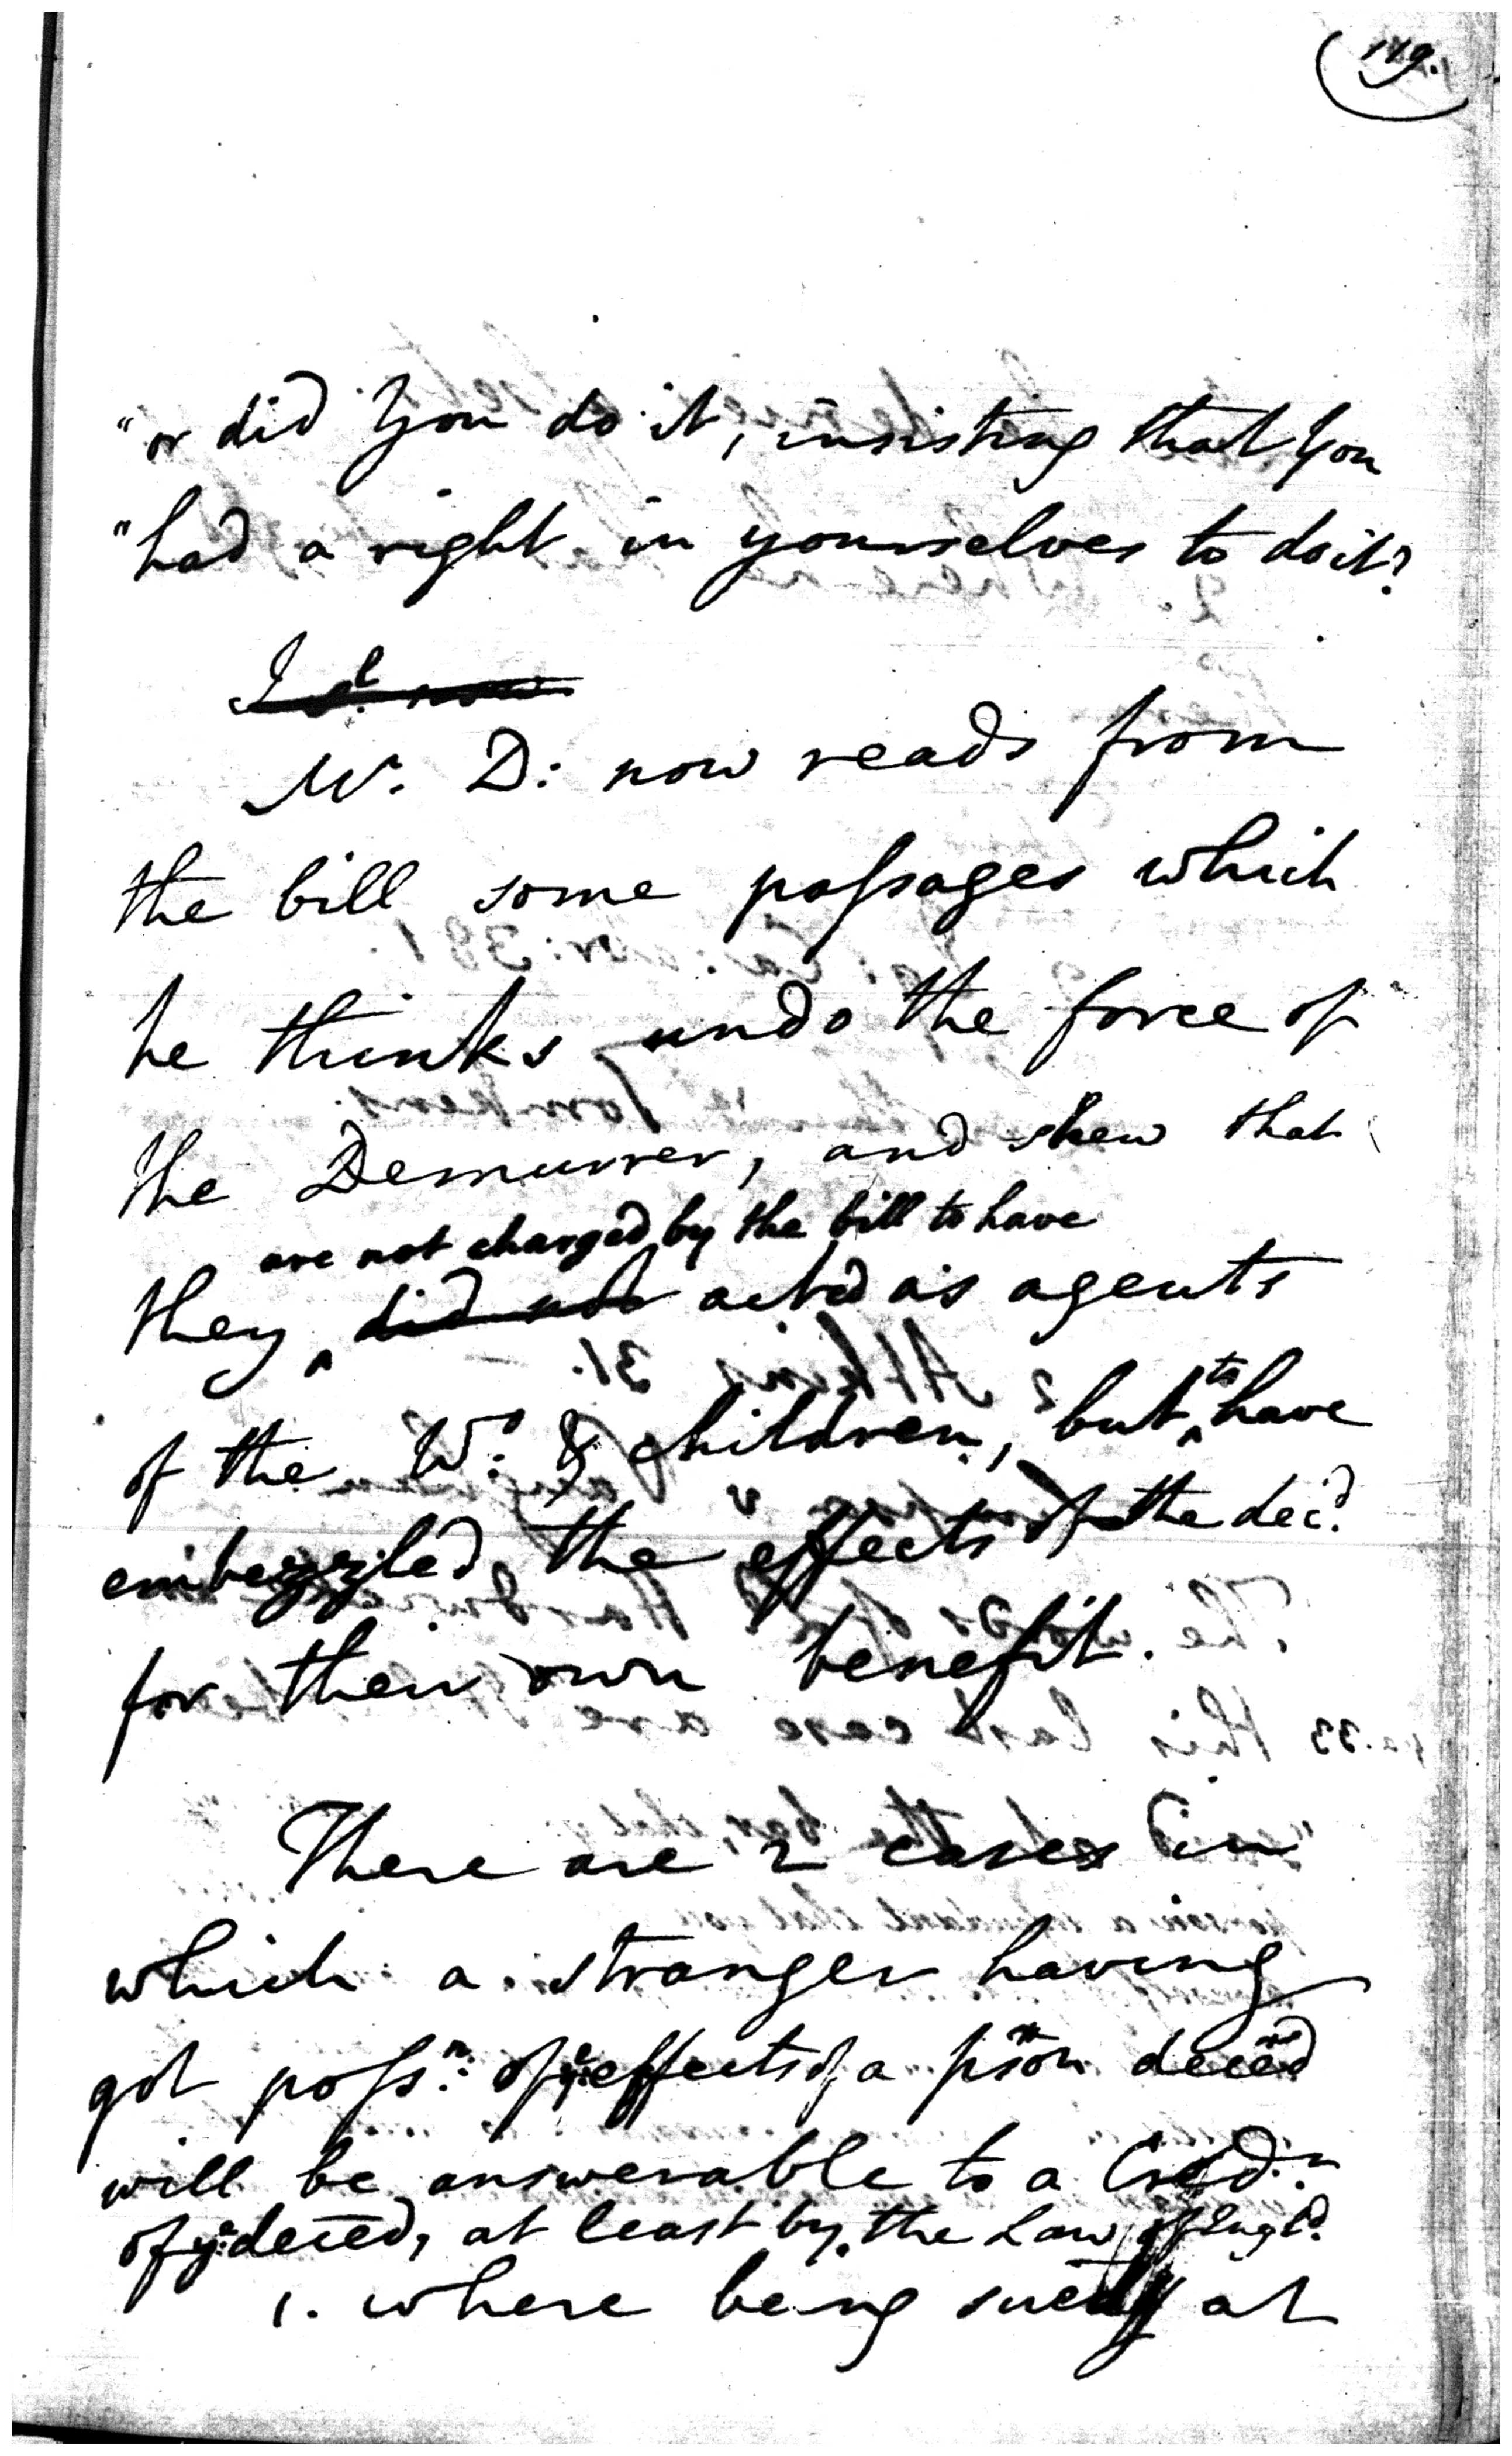 119.
"or did You do it, insisting that You
"had a right in yourselves to do it?
I sd. now
Mr. D: now reads from
the bill some passages which
he thinks undo the force of
the Demurrer, and shew that
are not charged by the bill to have
they ^ did not acted as agents
of the W: & children, but ^to have
embezzled the effects of the decd.
for their own benefit.
There are 2 cases in
which a stranger having
got possn: of ye: effects of a pson deced
will be answerable to a Credr.
of ye: deced, at least by the Law of Engld.
1. where being sued at